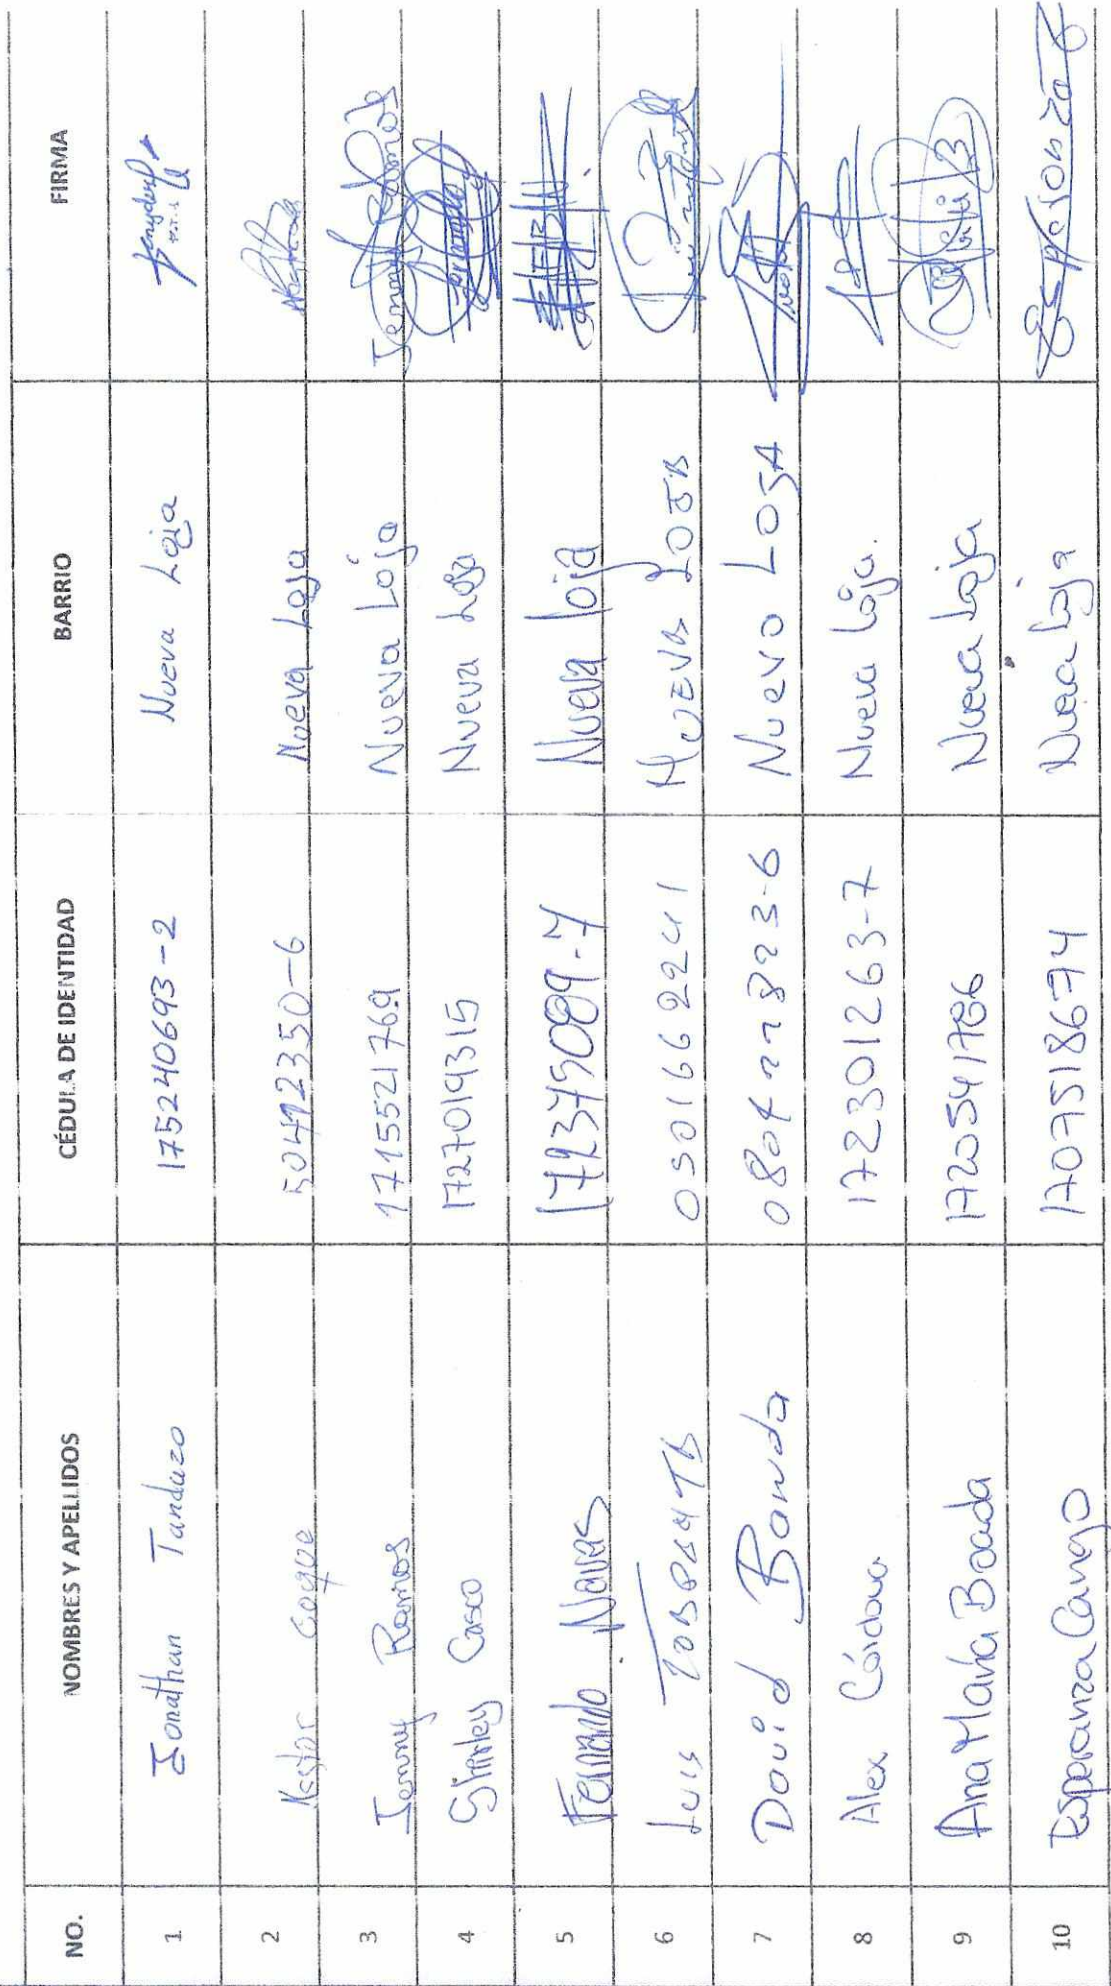 NO. NOMBRES Y APELLIDOS CÉDULA DE IDENTIDAD BARRIO FIRMA
1 Jonathan Tanduzo 175240693-2 Nueva Loja
2 Nestor Coque 50492350-6 Nueva Loja
3 Jenny Ramos 1715521769 Nueva Loja Jenny Ramos
4 Shirley Casco 1727019315 Nueva Loja
5 Fernando Navas 172375089-7 Nueva loja
6 Luis 0501662241 Nueva Loja
7 David Banda 0804 Nuevo LOJA
8 Alex Córdova 172301263-7 Nueva Loja.
9 Ana María Boada 1720541786 Nueva Loja
10 Esperanza Cango 1707518674 Nueva Loja